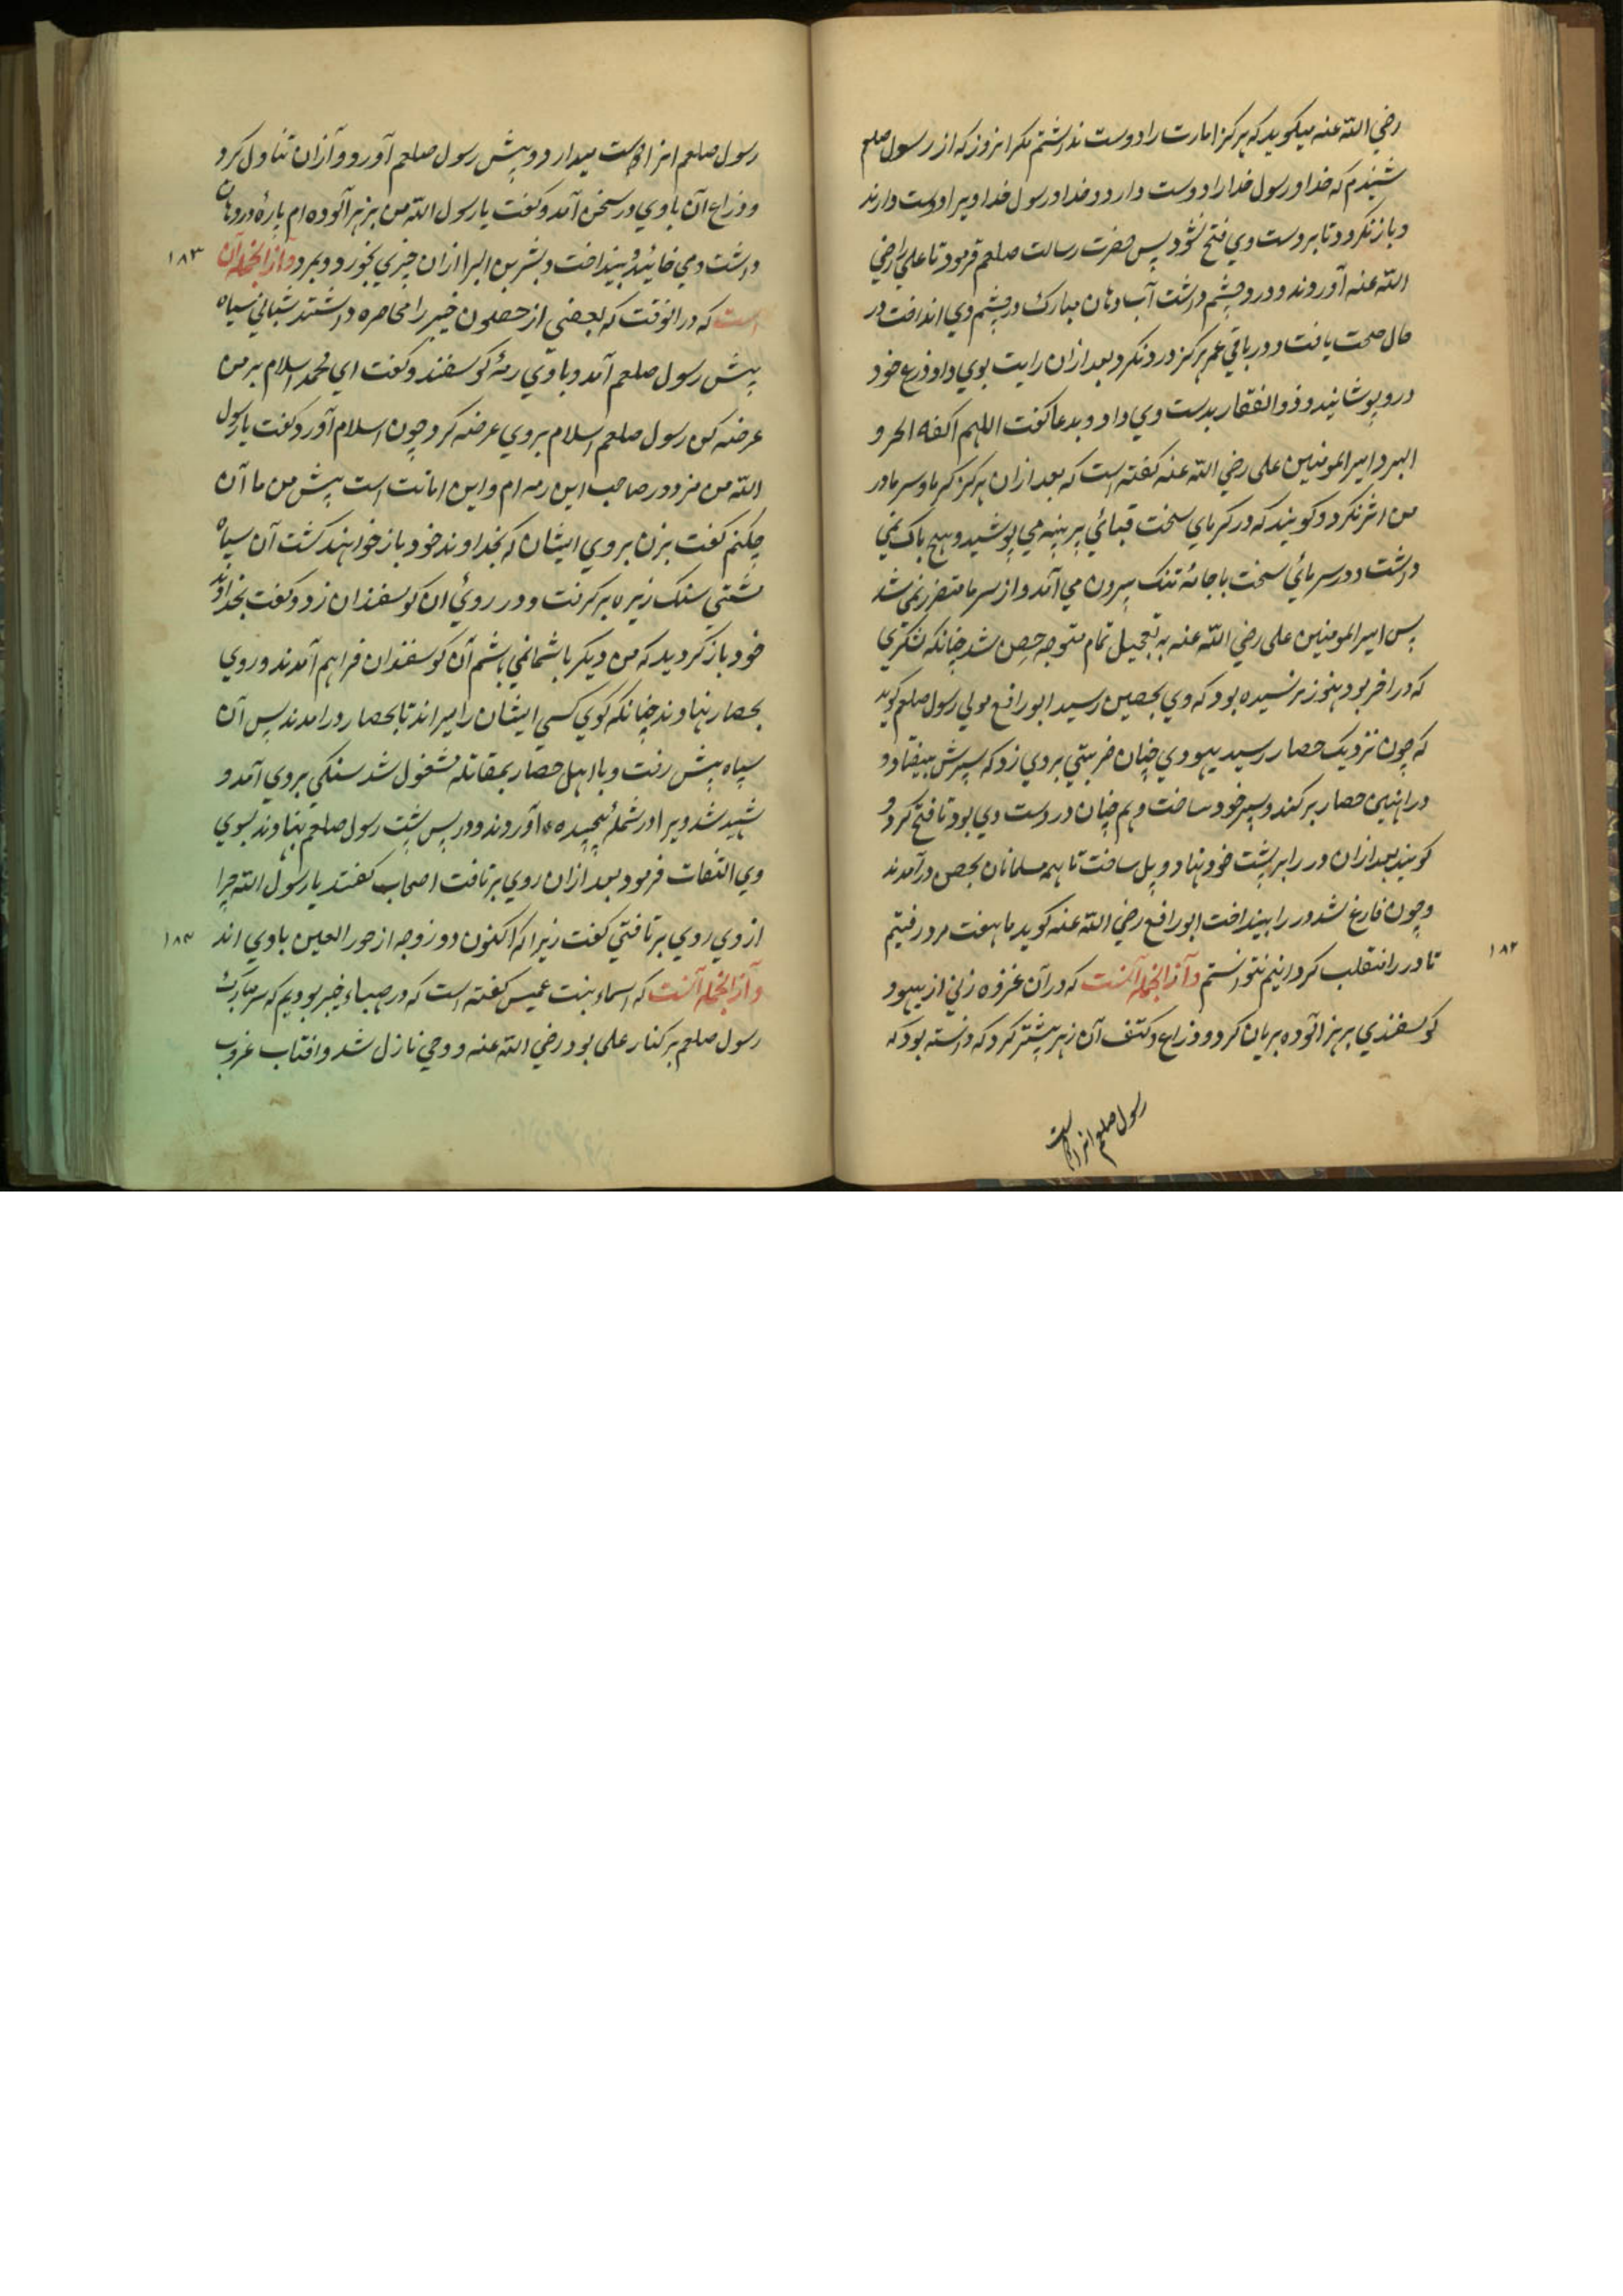 رضي الله عنه ميكويد كه هركز امارت را دوست نداشتم مكر انروز كه از رسول صلعم
شنيدم كه خدا و رسول خدا را دوست دارد و خدا و رسول خدا ويرا دوست دارند
و باز نكردد تا بر دست وي فتح نشود پس حضرت رسالت صلعم فرمود تا علي را رضي
الله عنه آوردند و درد چشم داشت آب دهان مبارك در چشم وي انداخت در
حال صحت يافت و در باقي عمر هركز درد نكرد بعد ازان رايت بوي داد و ذرع خود
درو پوشانيد و ذوالفقار بدست وي داد و بدعا كفت اللهم اكفه الحر و
البرد امير المومنين علي رضي الله عنه كفته است كه بعد ازان هركز كرما و سرما در
من اثر نكرد و كويند كه در كرماي سخت قبائي پر پنبه مي پوشيد و هيچ باك نمي
داشت و در سرمائي سخت با جامهٔ تنك بيرون مي آمد و از سرما متضرر نمي شد
پس امير المومنين علي رضي الله عنه به تعجيل تمام متوجه حصن شد چنانكه لشكري
كه در اخر بود هنوز نرسيده بود كه وي بحصين رسيد ابو رافع مولي رسول صلعم كويد
كه چون نزديك حصار رسيد يهودي چنان ضربتي بروي زد كه سپرش بيفتاد و
در اهنين حصار بركند و سپر خود ساخت و هم چنان در دست وي بود تا فتح كرد و
كويند بعد ازان در را بر پشت خود نهاد و پل ساخت تا همه مسلمانان بحصن در آمدند
و چون فارغ شد در را بينداخت ابو رافع رضي الله عنه كويد ما هفت مرد رفتيم
تا در را منقلب كردانيم نتوانستم و آز انجمله آنست كه در آن غزوه زني از يهود
١٨٢
كوسفندي بزهر آلوده بريان كرد و ذراع و كتف آن زهر بيشتر كرد كه دانسته بود كه
رسول صلعم انرا دوست
رسول صلعم انرا دوست ميدارد و پيش رسول صلعم آورد و آزان تناول كرد
و ذراع آن با وي در سخن آمد و كفت يا رسول الله من بزهر آلوده ام پارهٔ در دهان
داشت و مي خائيد و بينداخت و بشر بن البرا ازان چيزي بخورد و بمرد و آز انجمله آن
١٨٣
است كه در انوقت كه بعضي از حصون خيبر را محاصره داشتند شباني سياه
پيش رسول صلعم آمد و با وي رمهٔ كوسفند و كفت اي محمد اسلام بر من
عرضه كن رسول صلعم اسلام بروي عرضه كرد چون اسلام آورد كفت يا رسول
الله من مزدور صاحب اين رمه ام و اين امانت است پيش من ما آن
چكنم كفت بزن بر وي ايشان كه بخداوند خود باز خواهند كشت آن سياه
مشتي سنك زيره بر كرفت و در روئي ان كوسفندان زد و كفت بخداوند
خود باز كرديد كه من ديكر با شما نمي باشم آن كوسفندان فراهم آمدند و روي
بحصار نهاوند چنانكه كوي كسي ايشان را ميراند تا بحصار در امدند پس آن
سياه پيش رفت و با اهل حصار بمقاتله مشغول شد سنكي بروي آمد و
شهيد شد ويرا در شملهٔ پيچيده آوردند و در پس پشت رسول صلعم بنهاوند بسوي
وي التفات فرمود بعد ازان روي برتافت اصحاب كفتند يا رسول الله چرا
از وي روي برتافتي كفت زيرا كه اكنون دو زوجه از حور العين با وي اند
١٨٤
و آز انجمله آنست كه اسماء بنت عميس كفته است كه در صهباء خيبر بوديم كه سر مبارك
رسول صلعم بر كنار علي بود رضي الله عنه و وحي نازل شد و افتاب غروب